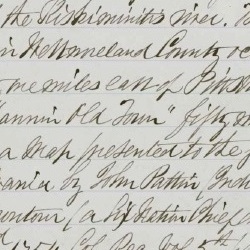 the Kiskiminitis river.
in Westmoreland County
miles east of Pitts
annin Old Town" fifty
a map presented to the
ania by John Pattin, Ind
ontour (a Six Nation Chief
Col.